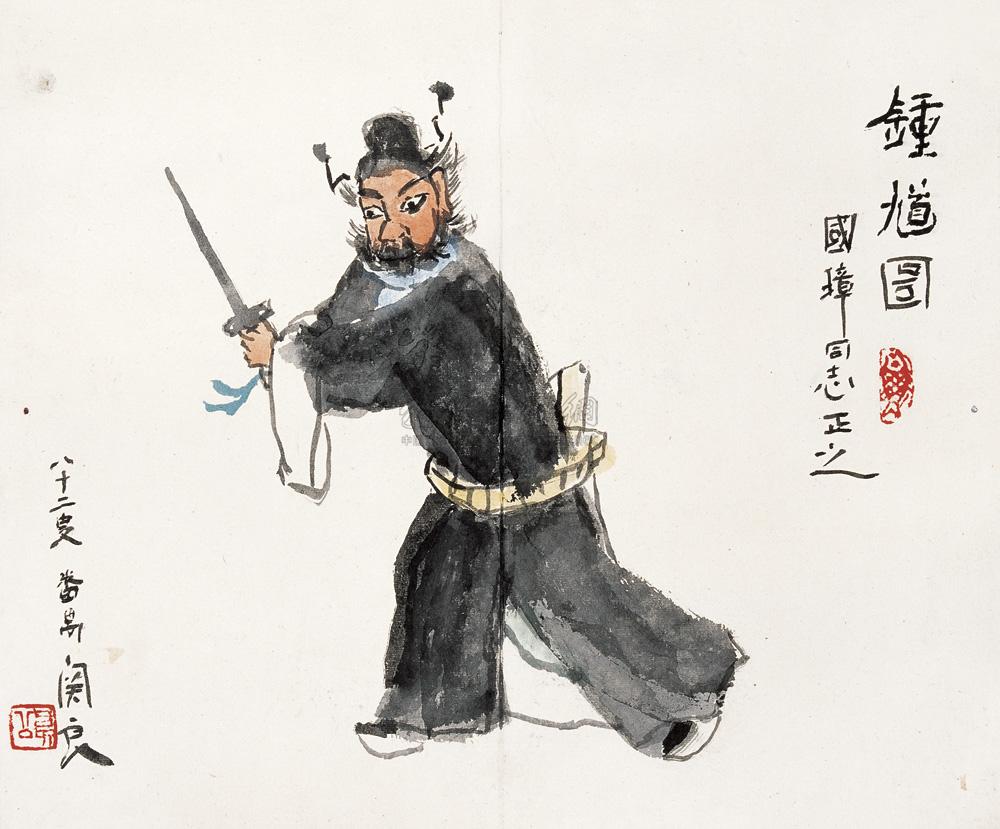 鍾馗圖
國璋同志正之
八十二叟 番禺 関良